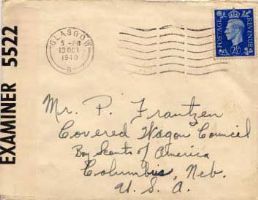 EXAMINER 5522
GLASGOW
5 - PM
OCT
1940
POSTAGE
REVENUE
Mr. P. Frantzen
Covered Wagon Council
Boy Scouts of America
Columbus, Neb.
U. S. A.